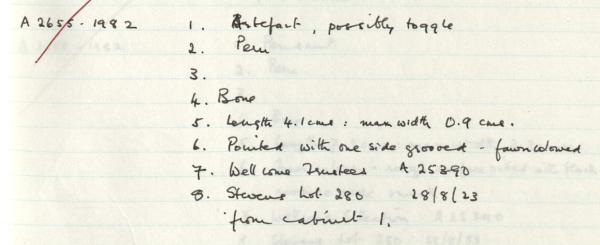 A 2655.1982 1. Artefact, possibly toggle
2. Peru
3.
4. Bone
5. Length 4.1cms : max width 0.9 cms.
6. Pointed with one side grooved - fawn coloured
7. Wellcome Trustees A 25390
8. Stevens Lot 280 28/8/23
from cabinet 1.